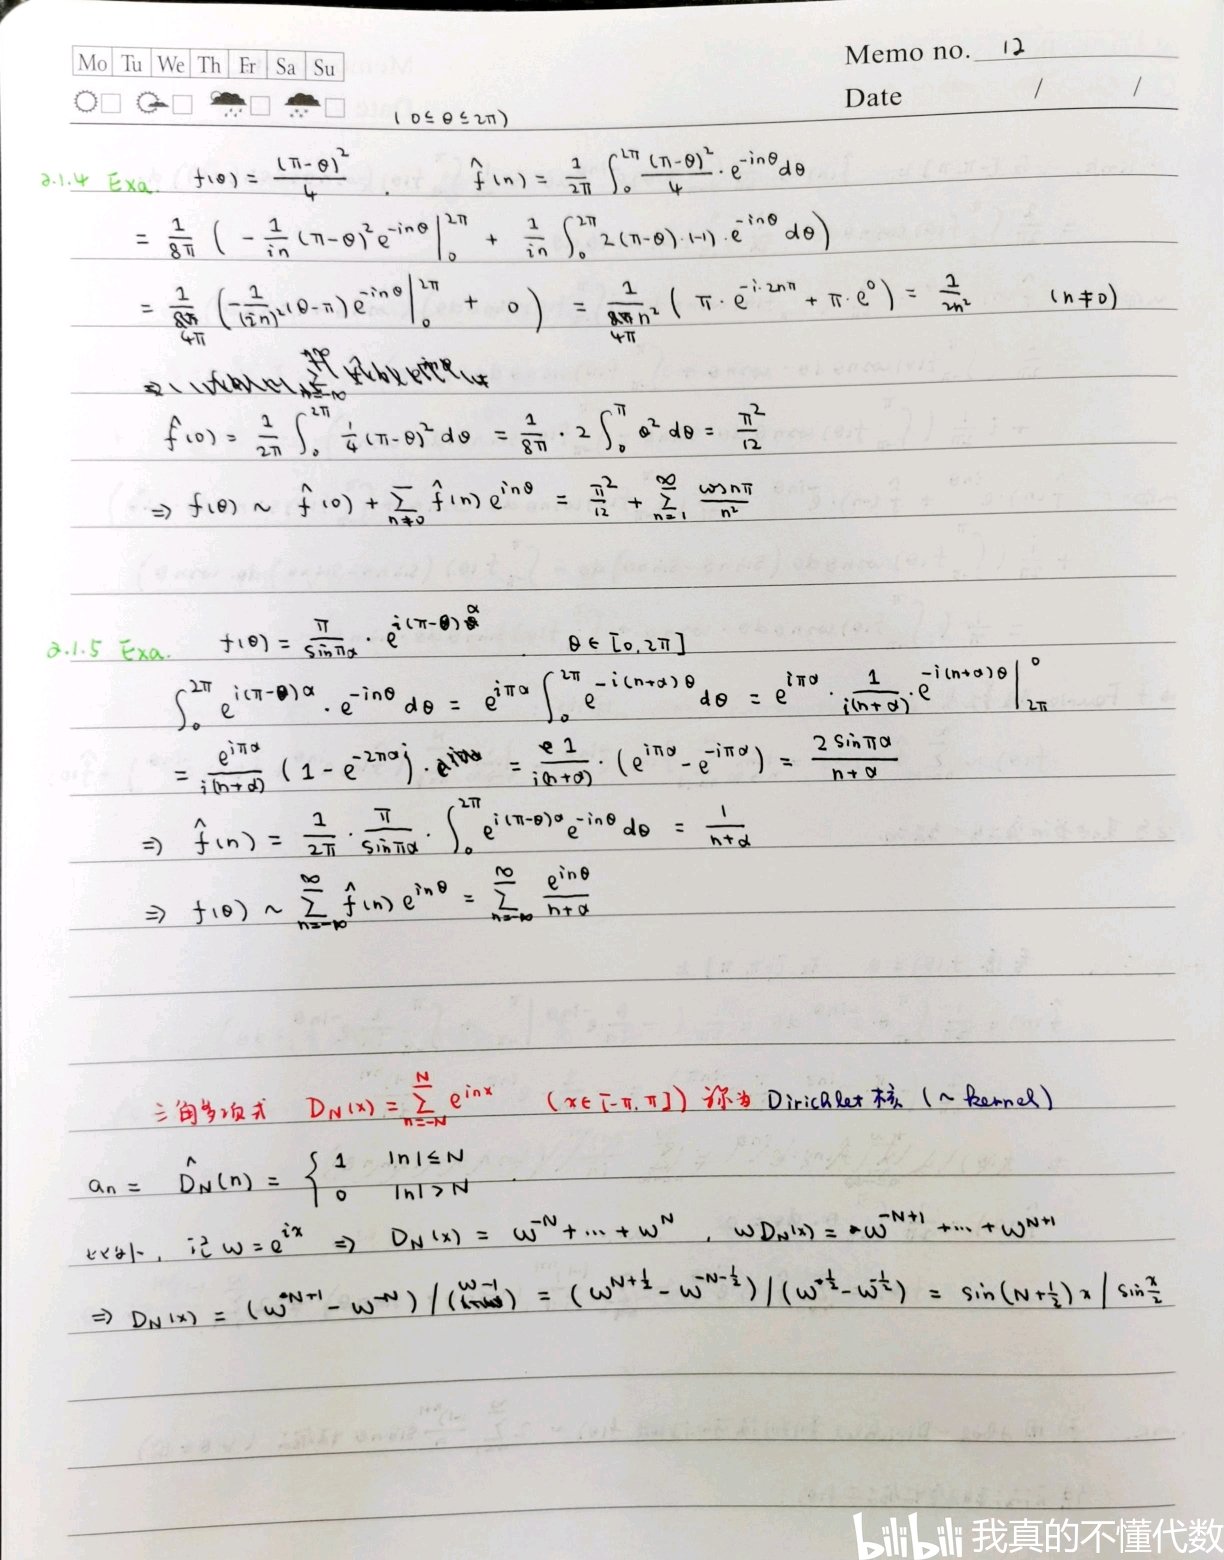 Mo Tu We Th Fr Sa Su
Memo no. 12
Date / /
(0≤θ≤2π)
2.1.4 Exa. f(θ) = (π-θ)²/4 . f̂(n) = 1/2π ∫₀^{2π} (π-θ)²/4 · e^{-inθ} dθ
= 1/8π ( - 1/in (π-θ)² e^{-inθ} |₀^{2π} + 1/in ∫₀^{2π} 2(π-θ)·(-1)·e^{-inθ} dθ )
= 1/4π ( -1/(in)² (θ-π) e^{-inθ} |₀^{2π} + 0 ) = 1/4πn² ( π·e^{-i·2nπ} + π·e⁰ ) = 1/2n² (n≠0)
f̂(0) = 1/2π ∫₀^{2π} 1/4 (π-θ)² dθ = 1/8π · 2 ∫₀^{π} θ² dθ = π²/12
⇒ f(θ) ~ f̂(0) + Σ_{n≠0} f̂(n) e^{inθ} = π²/12 + Σ_{n=1}^{∞} cosnπ/n²
2.1.5 Exa. f(θ) = π/sinπα · e^{i(π-θ)α} θ∈[0,2π]
∫₀^{2π} e^{i(π-θ)α} · e^{-inθ} dθ = e^{iπα} ∫₀^{2π} e^{-i(n+α)θ} dθ = e^{iπα} · 1/i(n+α) · e^{-i(n+α)θ} |_{2π}^{0}
= e^{iπα}/i(n+α) (1 - e^{-2παi}) = 1/i(n+α) · (e^{iπα} - e^{-iπα}) = 2sinπα/n+α
⇒ f̂(n) = 1/2π · π/sinπα · ∫₀^{2π} e^{i(π-θ)α} e^{-inθ} dθ = 1/n+α
⇒ f(θ) ~ Σ_{n=-∞}^{∞} f̂(n) e^{inθ} = Σ_{n=-∞}^{∞} e^{inθ}/n+α
三角多项式 D_N(x) = Σ_{n=-N}^{N} e^{inx} (x∈[-π,π]) 称为 Dirichlet 核 (~ kernel)
a_n = D̂_N(n) = { 1 |n|≤N
0 |n|>N .
记 ω = e^{ix} ⇒ D_N(x) = ω^{-N} + ··· + ω^{N} , ωD_N(x) = ω^{-N+1} + ··· + ω^{N+1}
⇒ D_N(x) = (ω^{N+1} - ω^{-N}) / (ω-1) = (ω^{N+1/2} - ω^{-N-1/2}) / (ω^{1/2} - ω^{-1/2}) = sin(N+1/2)x / sin x/2
bilibili 我真的不懂代数